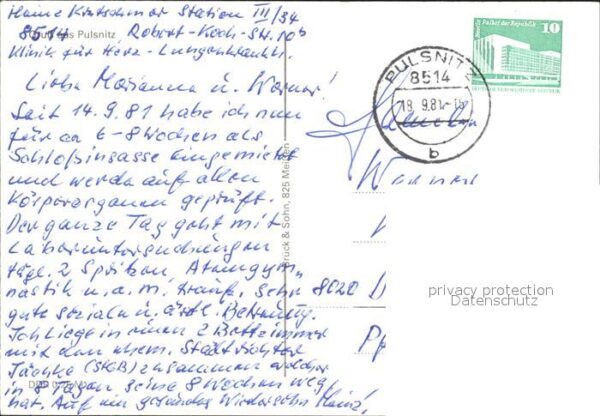 Heinz Kretschmar Station III/34
8514 Robert-Koch-Str. 10b
Gruß aus Pulsnitz
Klinik für Herz- Lungenkrankh.
Liebe Marianna u. Werner!
Seit 14.9.81 habe ich nun
für ca 6-8 Wochen als
Schloßinsasse eingemietet
und werde auf allen
Körperorganen geprüft.
Der ganze Tag geht mit
Laboruntersuchungen
tägl. 2 Spritzen, Atemgym-
nastik u. a. m. drauf. Sehr
gute soziale u. ärztl. Betreuung.
Ich liege in einen 2 Bettzimmer
mit dem ehem. Stadtrichter
(StGB) zusammen welcher
in 8 Tagen seine 8 Wochen weg
hat. Auf ein gesundes Wiedersehn Heinz!
Brück & Sohn, 825 Meißen
Palast der Republik
10
PULSNITZ
8514
18. 9.81
b
Familie
Werner
8020 D
privacy protection
Datenschutz